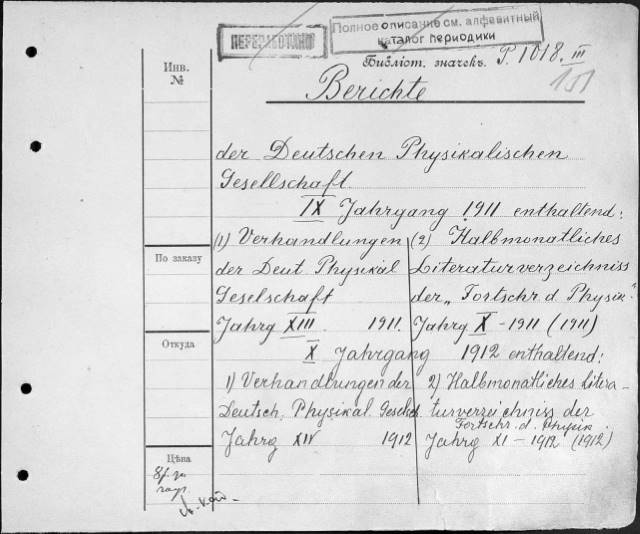 ПЕРЕРАБОТАНО
Полное описание см. алфавитный
каталог периодики
Библіот. значекъ. P. 1018. III
151
Инв.
№
Berichte
der Deutschen Physikalischen
Gesellschaft
IX Jahrgang 1911 enthaltend:
(1) Verhandlungen
der Deut Physikal
Geselschaft
Jahrg XIII. 1911.
(2) Halbmonatliches
Literaturverzeichniss
der „Fortschr. d. Physik"
Jahrg X - 1911 (1911)
По заказу
X Jahrgang 1912 enthaltend:
Откуда
1) Verhandlungen der
Deutsch. Physikal. Gesellsch.
Jahrg XIV 1912
2) Halbmonatliches Litera-
turverzeichniss der
Fortschr. d. Physik
Jahrg XI - 1912 (1912)
Цѣна